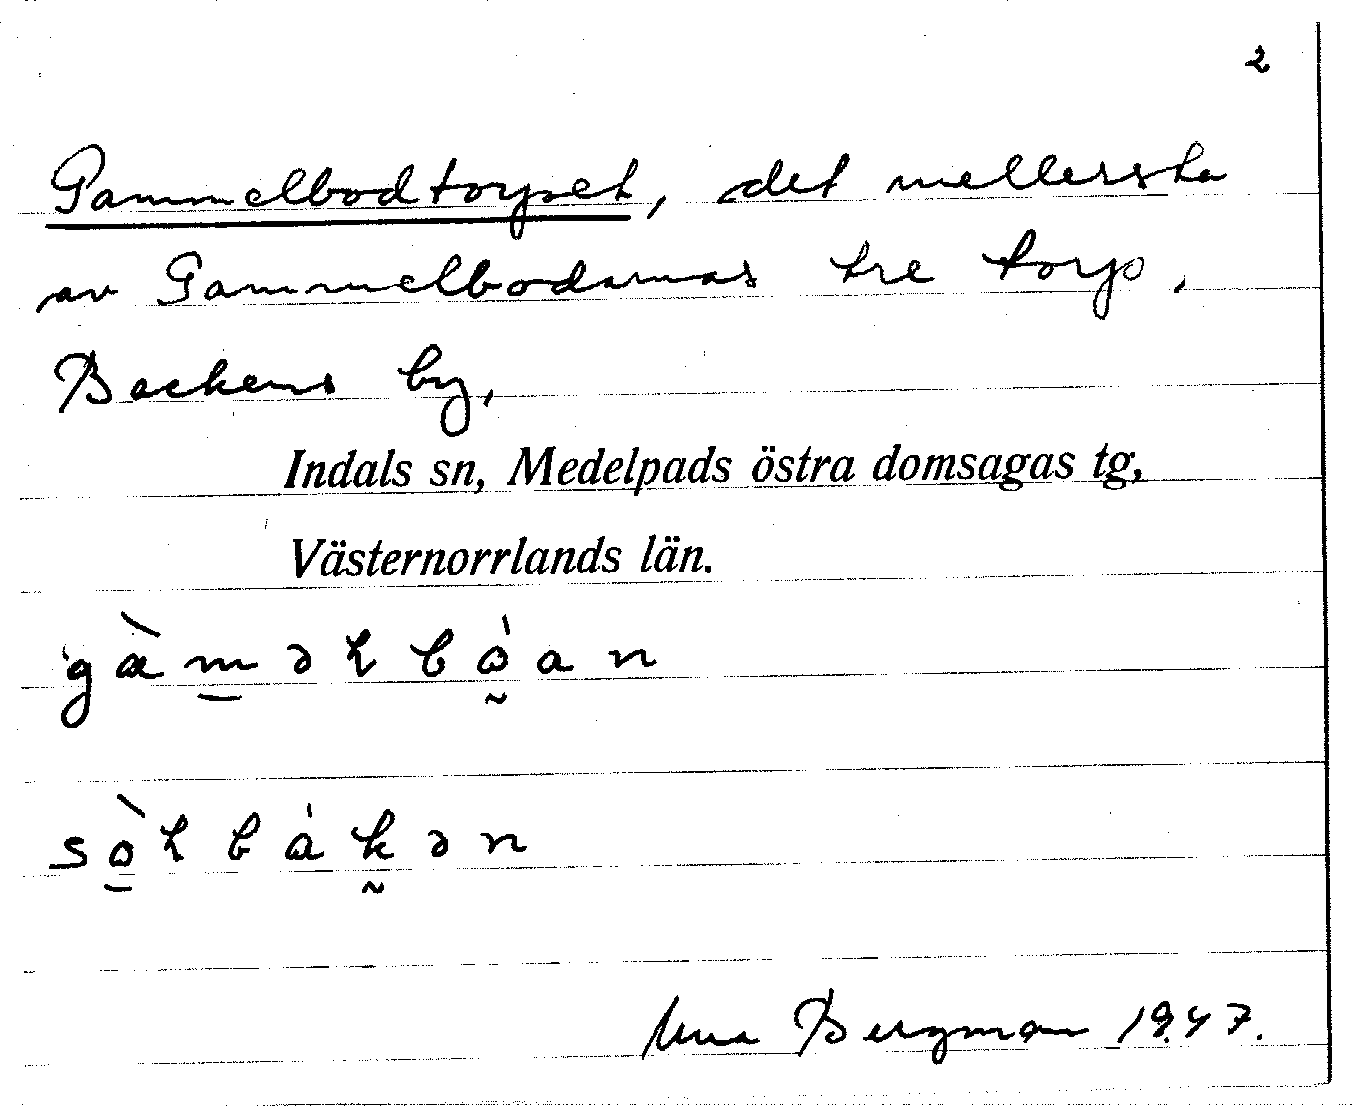 2
Gammelbodtorpet, det mellersta
av Gammelbodarnas tre torp,
Backens by,
Indals sn, Medelpads östra domsagas tg,
Västernorrlands län.
Bergman 1947.